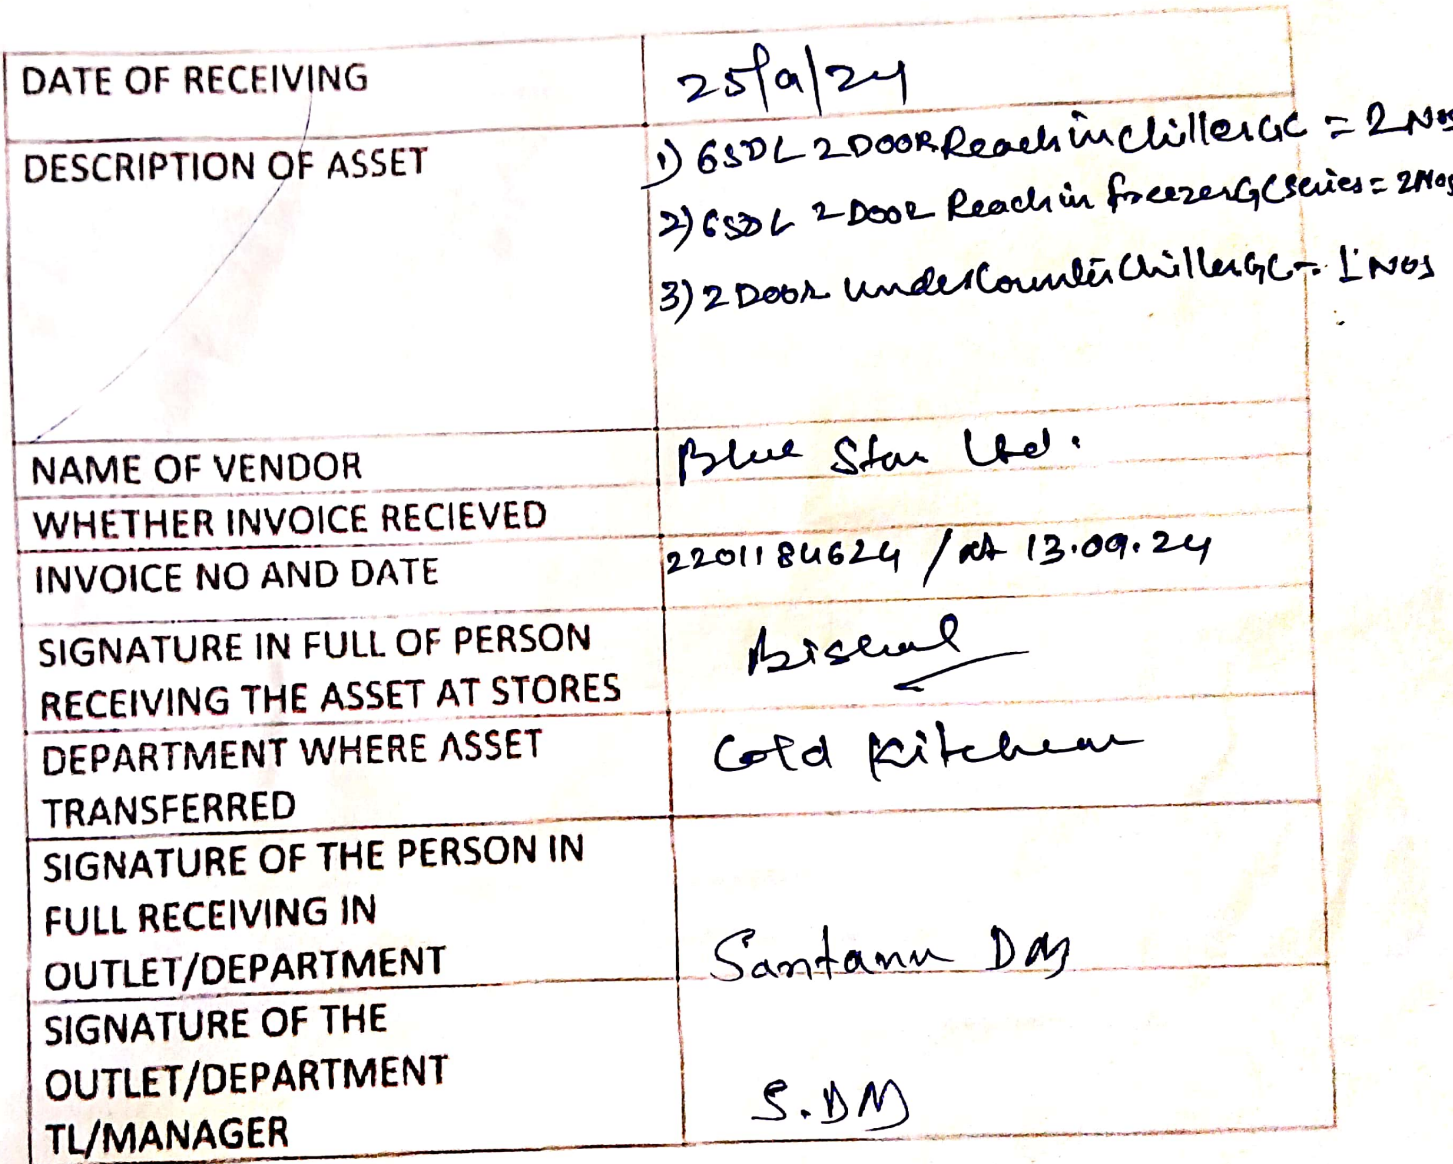 DATE OF RECEIVING 25/9/24
DESCRIPTION OF ASSET 1) 650L 2 DOOR Reach in Chiller GC = 2 Nos
2) 650L 2 Door Reach in freezer GC Series = 2 Nos
3) 2 Door Under Counter Chiller GC = 1 Nos
NAME OF VENDOR Blue Star Ltd.
WHETHER INVOICE RECIEVED
INVOICE NO AND DATE 2201184624 / dt 13.09.24
SIGNATURE IN FULL OF PERSON
RECEIVING THE ASSET AT STORES Bishal
DEPARTMENT WHERE ASSET Cold Kitchen
TRANSFERRED
SIGNATURE OF THE PERSON IN
FULL RECEIVING IN
OUTLET/DEPARTMENT Santanu Das
SIGNATURE OF THE
OUTLET/DEPARTMENT
TL/MANAGER S. Das